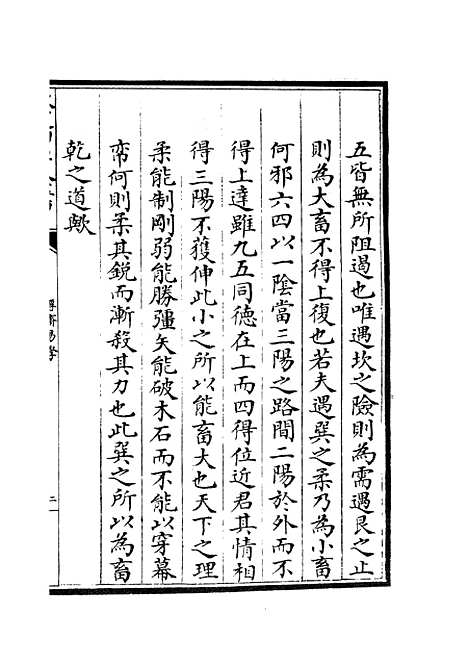 五皆無所阻遏也唯遇坎之險則為需遇艮之止
則為大畜不得上復也若夫遇巽之柔乃為小畜
何邪六四以一陰當三陽之路間二陽於外而不
得上達雖九五同德在上而四得位近君其情相
得三陽不獲伸此小之所以能畜大也天下之理
柔能制剛弱能勝彊矢能破木石而不能以穿幕
帟何則柔其銳而漸殺其力也此巽之所以為畜
乾之道歟
易學